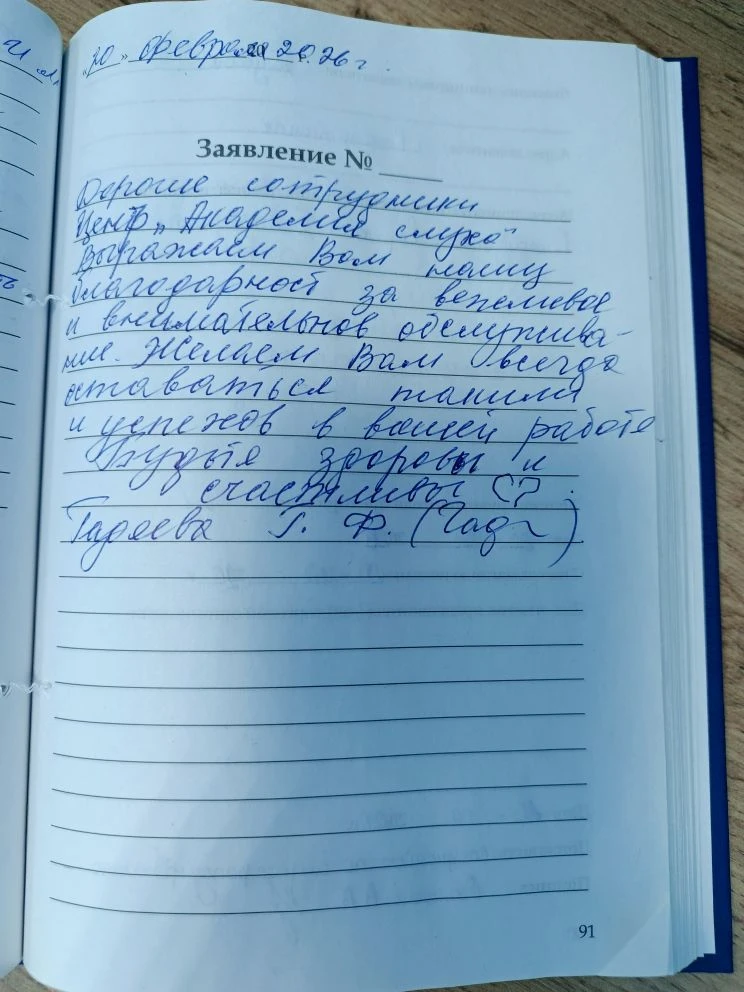 "20" февраля 2026 г.
Заявление № ______
Дорогие сотрудники
Центр „Академия слуха"
Выражаем Вам нашу
благодарност за вежливое
и внимательное обслужива-
ние. Желаем Вам всегда
оставаться такими
и успехов в вашей работе
Будьте здоровы и
счастливы
Гадяева Г. Ф. (Гад
91